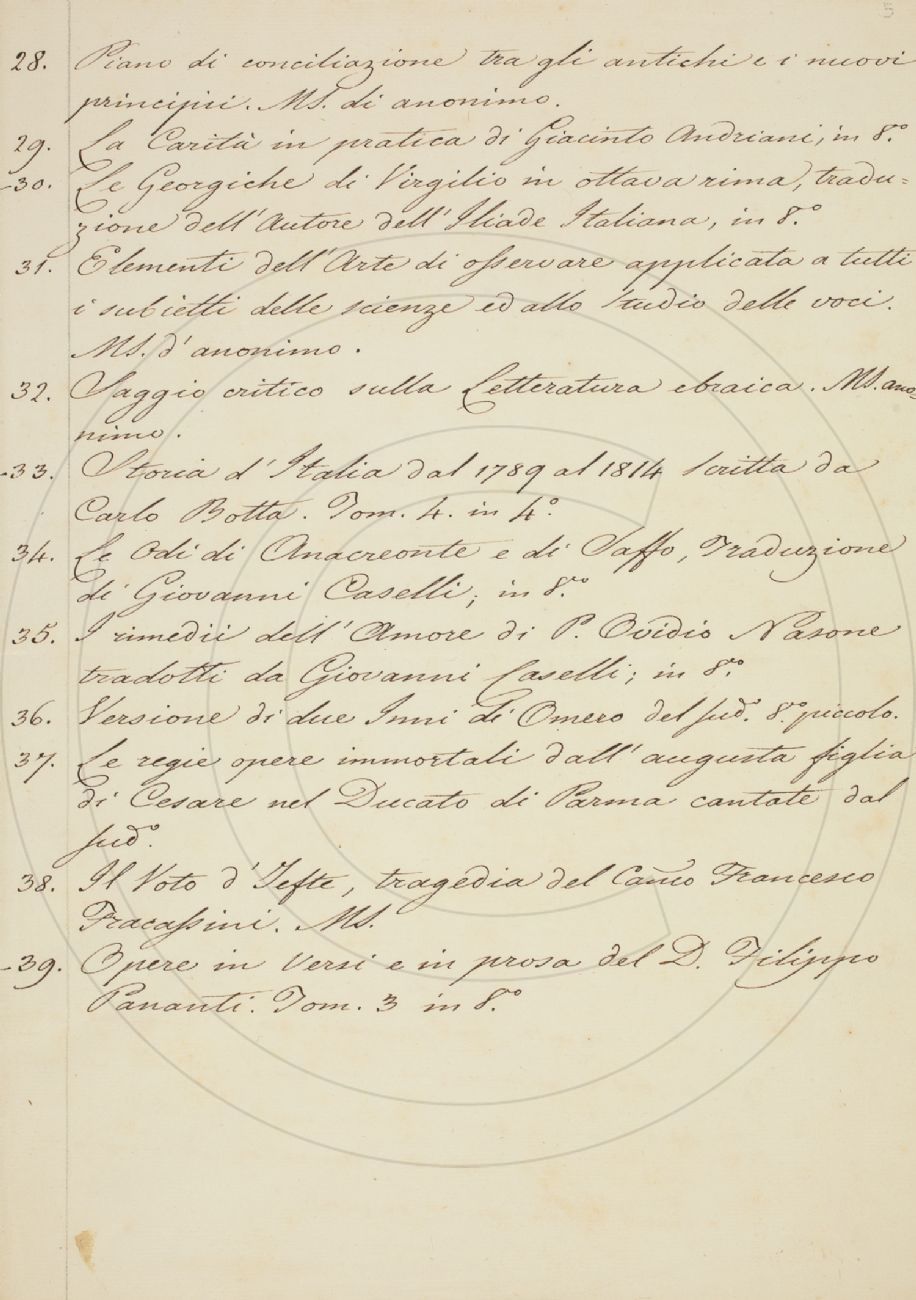 5
28. Piano di conciliazione tra gli antichi e i nuovi
principii. MS. di anonimo.
29. La Carità in pratica di Giacinto Andriani, in 8.º
-30. Le Georgiche di Virgilio in ottava rima, tradu=
zione dell'Autore dell'Iliade Italiana, in 8.º
31. Elementi dell'Arte di osservare applicata a tutti
i subietti delle scienze ed allo studio delle voci.
MS. d'anonimo.
32. Saggio critico sulla Letteratura ebraica. MS. ano=
nimo.
-33. Storia d'Italia dal 1789 al 1814 scritta da
Carlo Botta. Tom. 4. in 4.º
34. Le Odi di Anacreonte e di Saffo, Traduzione
di Giovanni Caselli; in 8.vo
35. I rimedii dell'Amore di P. Ovidio Nasone
tradotti da Giovanni Caselli; in 8.vo
36. Versione di due Inni di Omero del sud.º 8.º piccolo.
37. Le regie opere immortali dall'augusta figlia
di Cesare nel Ducato di Parma cantate dal
sud.º
38. Il Voto d'Jefte, tragedia del Can.co Francesco
Fracassini. MS.
-39. Opere in versi e in prosa del D. Filippo
Pananti. Tom. 3 in 8.º